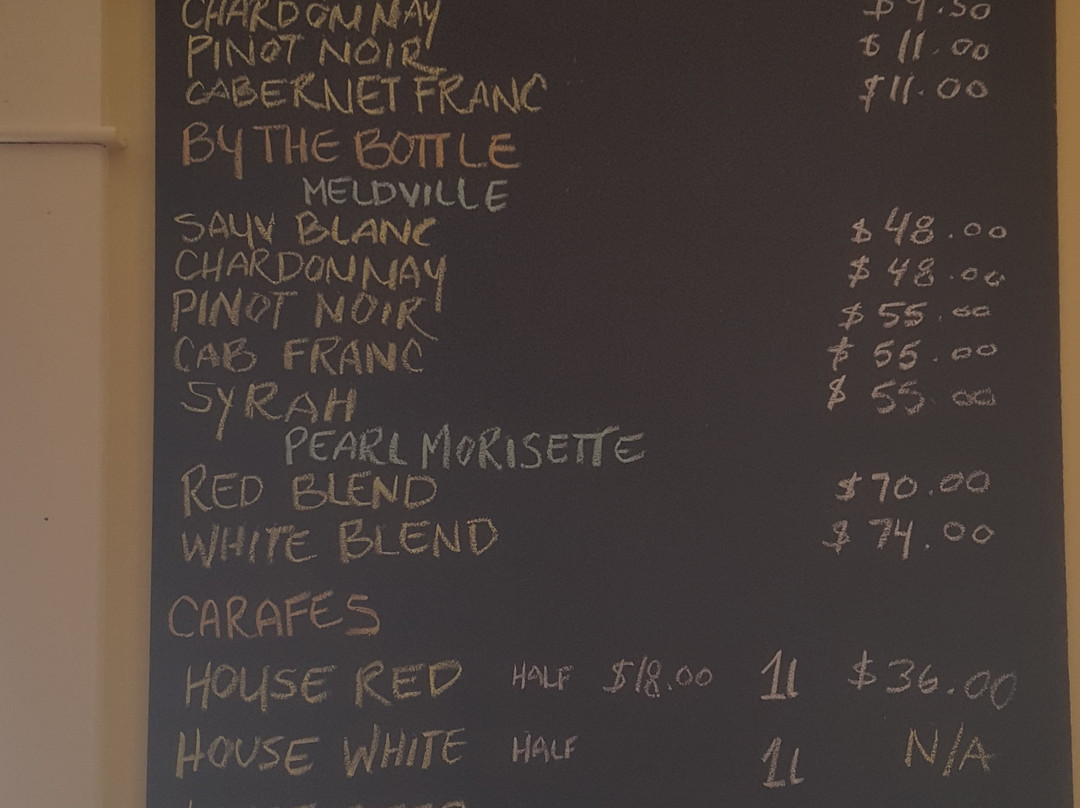 CHARDONNAY $9.50
PINOT NOIR $11.00
CABERNET FRANC $11.00
BY THE BOTTLE
MELDVILLE
SAUV BLANC $48.00
CHARDONNAY $48.00
PINOT NOIR $55.00
CAB FRANC $55.00
SYRAH $55.00
PEARL MORISETTE
RED BLEND $70.00
WHITE BLEND $74.00
CARAFES
HOUSE RED HALF $18.00 1L $36.00
HOUSE WHITE HALF 1L N/A